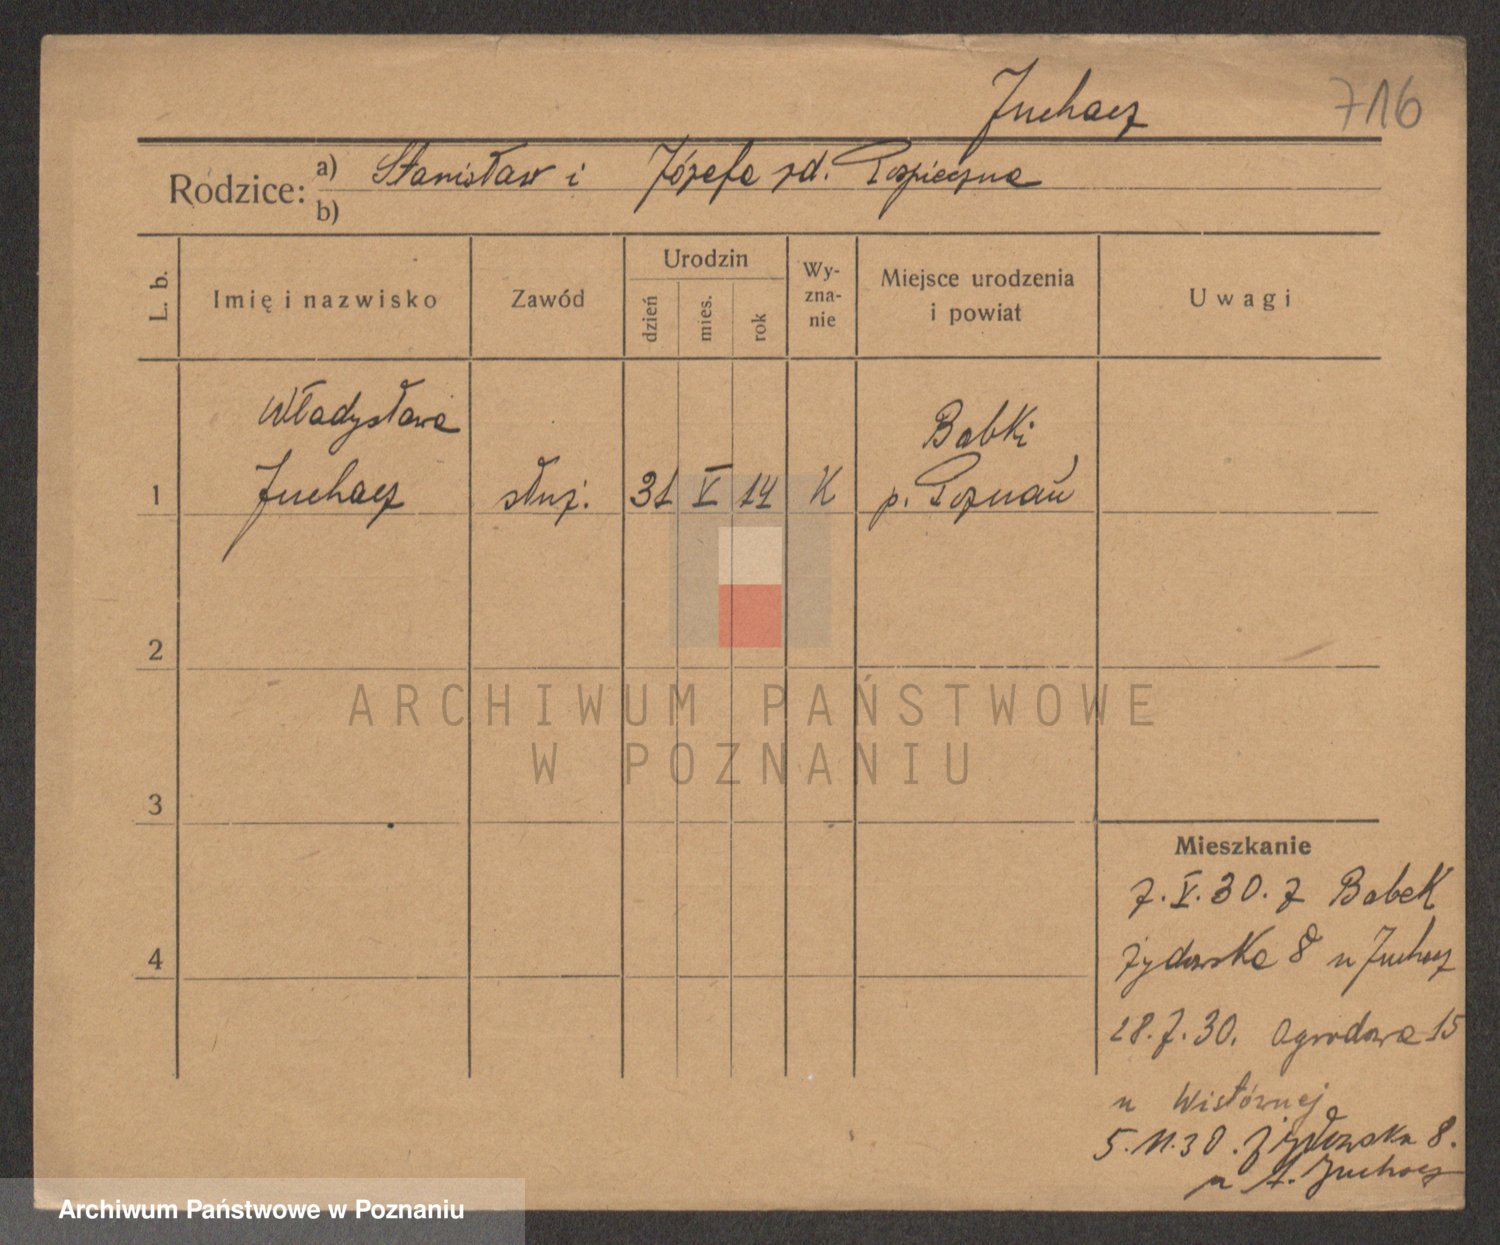 Juhacz
716
Rodzice: a) Stanisław i Józefa zd. Pospieszna
b)
L. b.
Imię i nazwisko
Zawód
Urodzin
dzień
mies.
rok
Wy-
zna-
nie
Miejsce urodzenia
i powiat
Uwagi
Władysława
Juhacz
Babki
1 służ. 31 V 14 K p. Poznań
2
ARCHIWUM PAŃSTWOWE
W POZNANIU
3
Mieszkanie
7.V.30. z Babek
4
Żydowska 8 u Juhacz
28.7.30. Ogrodowa 15
u
5.11.30. Żydowska 8.
u A. Juhacz
Archiwum Państwowe w Poznaniu